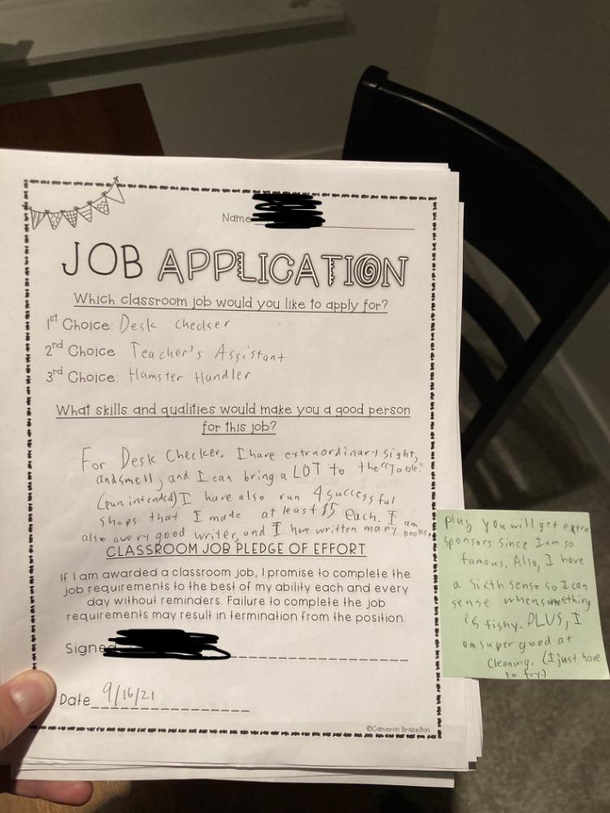 Name
JOB APPLICATION
Which classroom job would you like to apply for?
1st Choice: Desk checker
2nd Choice Teacher's Assistant
3rd Choice: Hamster Handler
What skills and qualities would make you a good person
for this job?
For Desk Checker, I have extraordinary sight,
and smell, and I can bring a LOT to the "Table."
(pun intended) I have also run 4 successful
shops that I made at least $5 each. I am
also a very good writer, and I have written many books.
CLASSROOM JOB PLEDGE OF EFFORT
If I am awarded a classroom job, I promise to complete the
job requirements to the best of my ability each and every
day without reminders. Failure to complete the job
requirements may result in termination from the position.
Signed
Date 9/16/21
©Cameron Brazelton
plus, you will get extra
sponsors since I am so
famous. Also, I have
a sixth sense so I can
sense when something
is fishy. PLUS, I
am super good at
cleaning. (I just have
to try.)